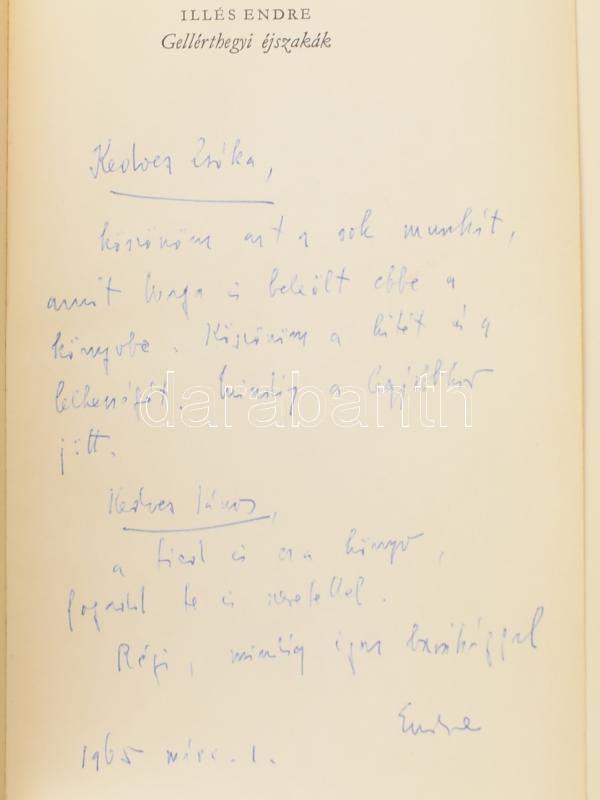 ILLÉS ENDRE
Gellérthegyi éjszakák
Kedves Zsóka,
köszönöm azt a sok munkát,
amit maga is beleölt ebbe a
könyvbe. Köszönöm a hitét és a
lelkességét. Mindig a legjobbkor
jött.
Kedves János,
a tiéd is ez a könyv,
fogadd te is szeretettel.
Régi, mindig igaz barátsággal
Endre
1965 márc. 1.
darabanth